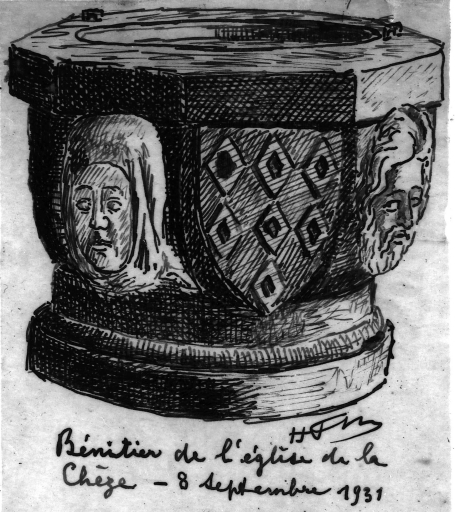 Bénitier de l'église de la
Chèze - 8 septembre 1931